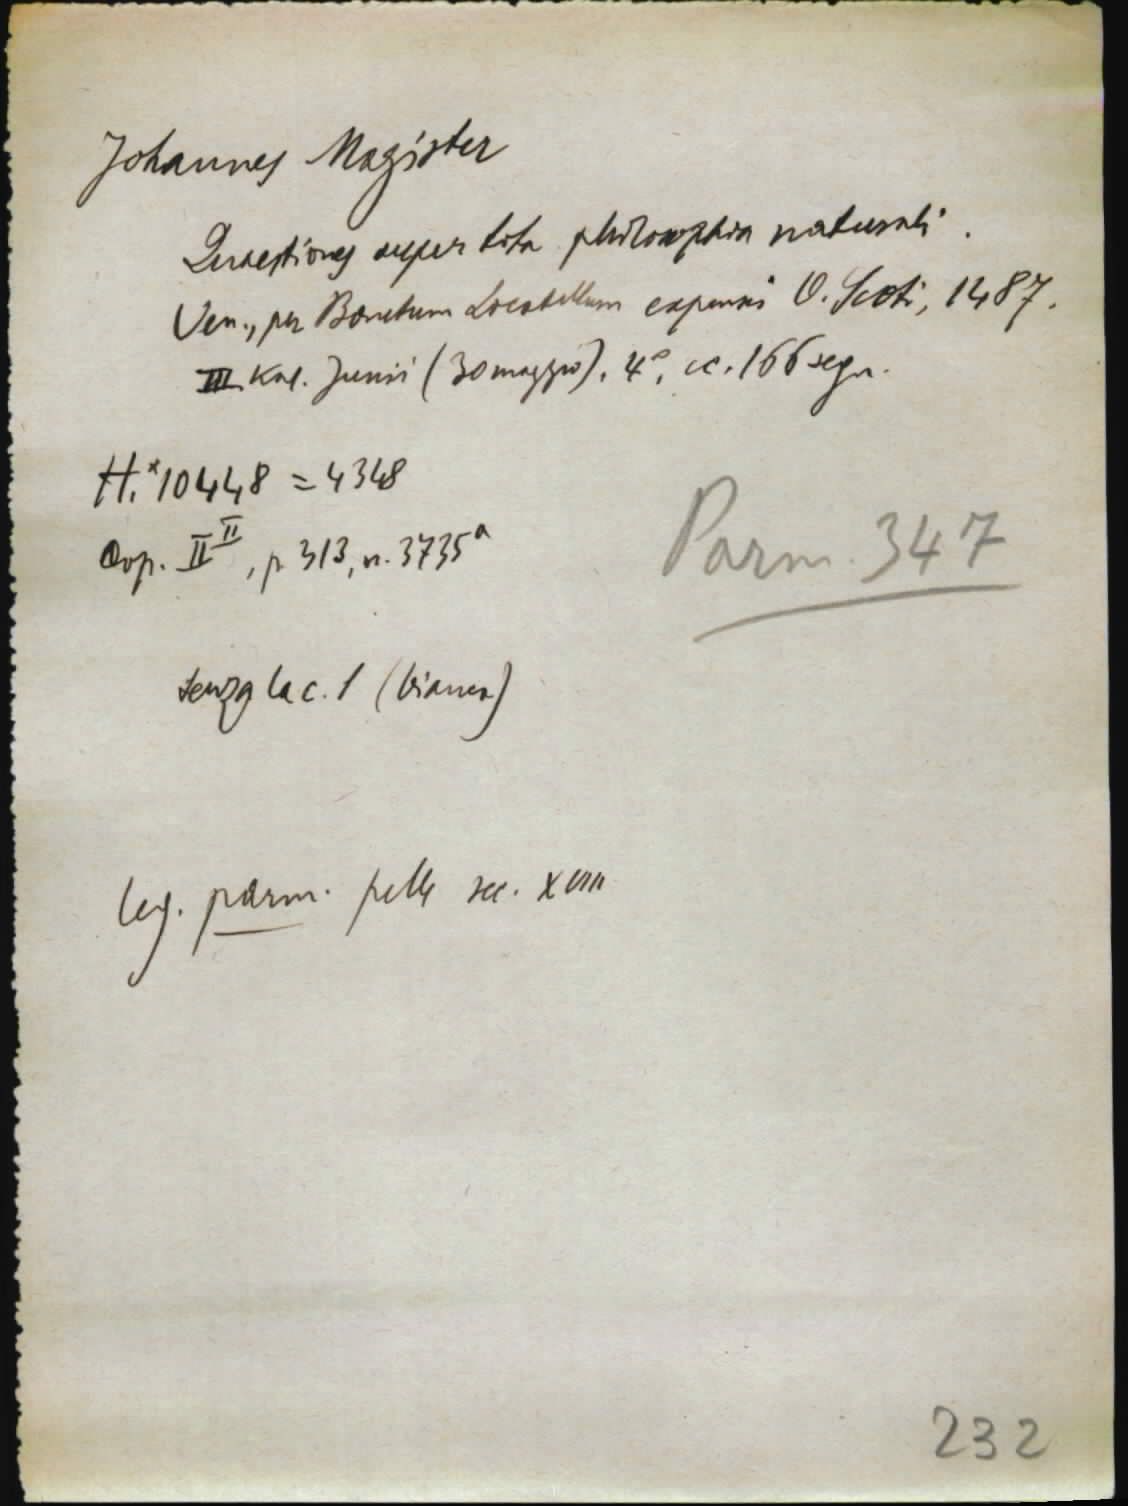 Johannes Magister
Quaestiones super tota philosophia naturali.
Ven., per Bonetum Locatellum expensis O. Scoti, 1487.
III Kal. Junii (30 maggio). 4°, cc. 166 segn.
H.*10448 = 4348
Cop. II II, p 313, n. 3735a
Parm. 347
senza la c. 1 (bianca)
leg. parm. pelle sec. XVIII
232